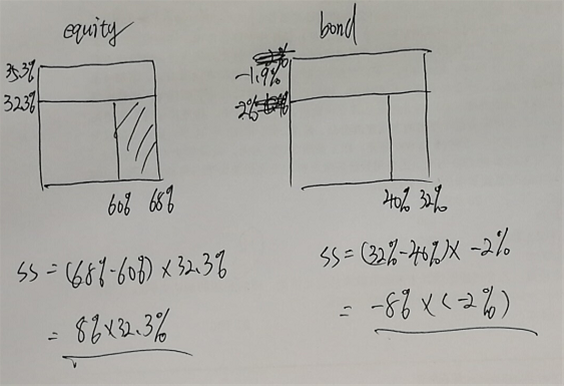 equity
35.3%
32.3%
60% 68%
SS = (68%-60%) × 32.3%
= 8% × 32.3%
bond
-1.9%
-2%
40% 32%
SS = (32%-40%) × -2%
= -8% × (-2%)